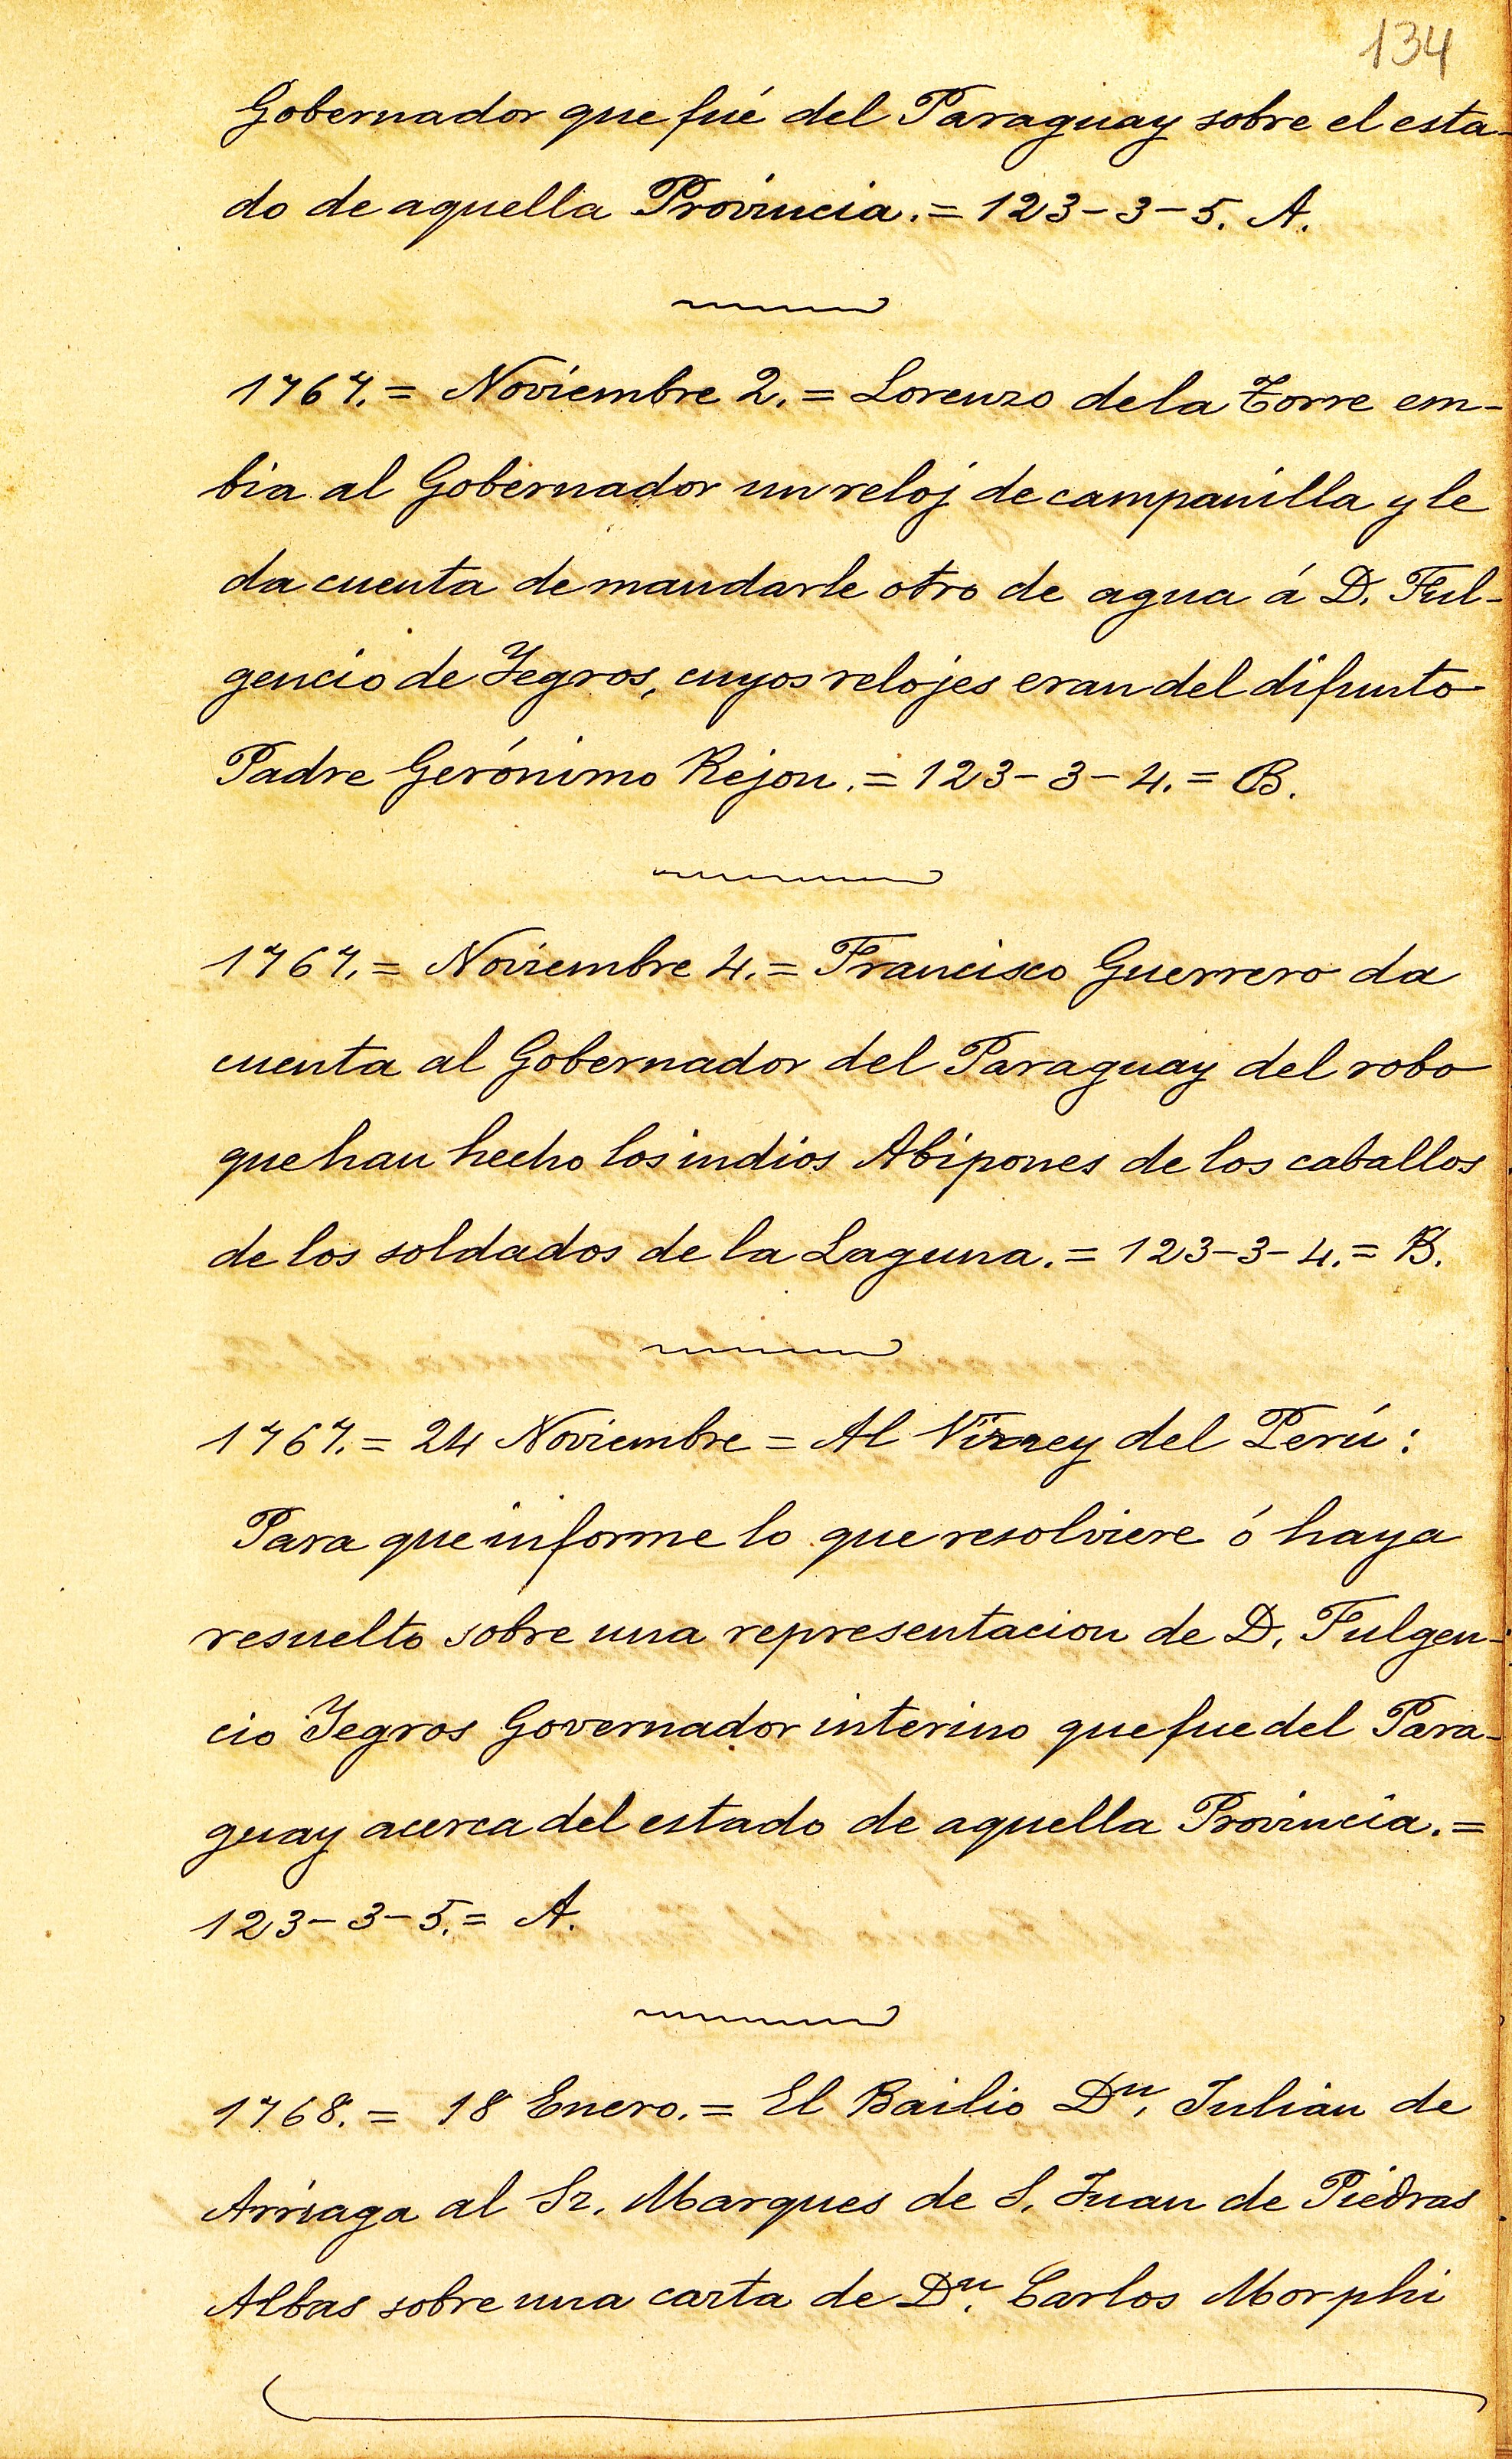 134
Gobernador que fué del Paraguay sobre el esta-
do de aquella Provincia. = 123-3-5. A.
1767. = Noviembre 2. = Lorenzo de la Torre em-
bia al Gobernador un reloj de campanilla y le
da cuenta de mandarle otro de agua á D. Ful-
gencio de Yegros, cuyos relojes eran del difunto
Padre Gerónimo Rejon. = 123-3-4. = B.
1767. = Noviembre 4. = Francisco Guerrero da
cuenta al Gobernador del Paraguay del robo
que han hecho los indios Abipones de los caballos
de los soldados de la Laguna. = 123-3-4. = B.
1767. = 24 Noviembre = Al Virrey del Perú:
Para que informe lo que resolviere ó haya
resuelto sobre una representacion de D. Fulgen-
cio Yegros Governador interino que fue del Para-
guay acerca del estado de aquella Provincia. =
123-3-5. = A.
1768. = 18 Enero. = El Bailio Dn. Julian de
Arriaga al Sr. Marques de S. Juan de Piedras
Albas sobre una carta de Dn. Carlos Morphi